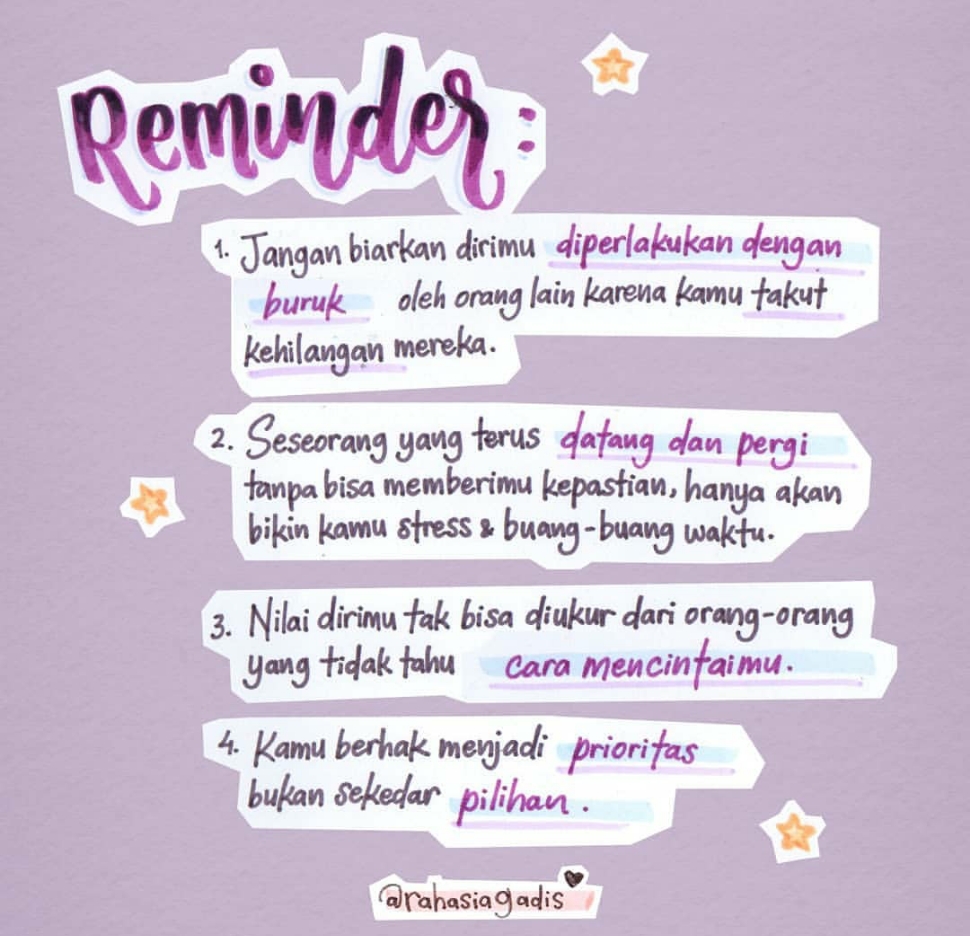 Reminder:
1. Jangan biarkan dirimu diperlakukan dengan
buruk oleh orang lain karena kamu takut
kehilangan mereka.
2. Seseorang yang terus datang dan pergi
tanpa bisa memberimu kepastian, hanya akan
bikin kamu stress & buang-buang waktu.
3. Nilai dirimu tak bisa diukur dari orang-orang
yang tidak tahu cara mencintaimu.
4. Kamu berhak menjadi prioritas
bukan sekedar pilihan.
@rahasiagadis